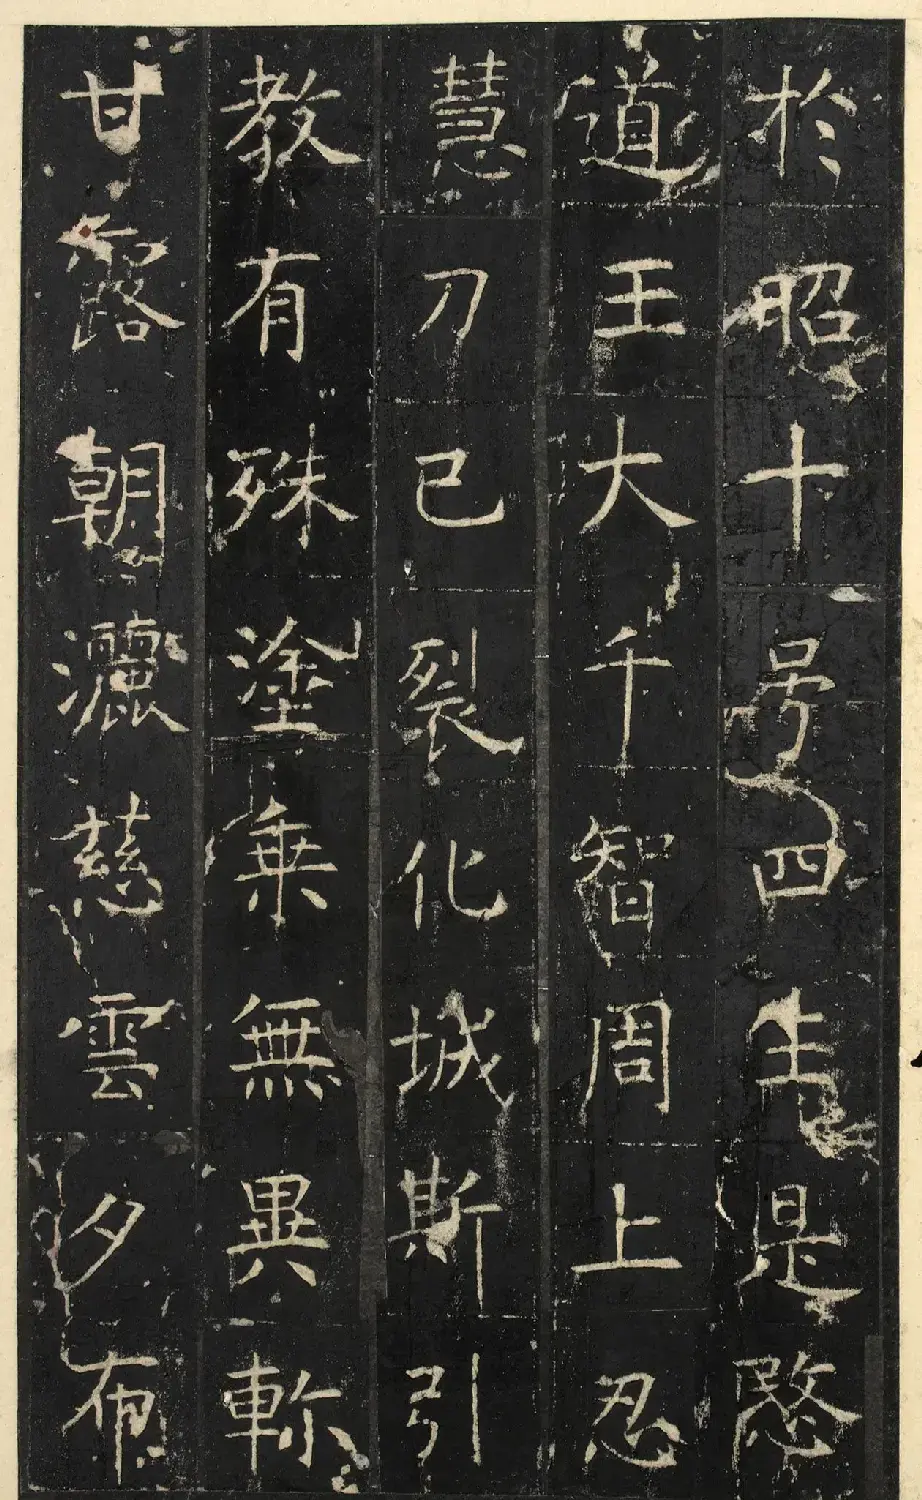 於昭十号四生是愍
道王大千智周上忍
慧刀已裂化城斯引
教有殊塗乗無異軫
甘露朝灑慈雲夕布